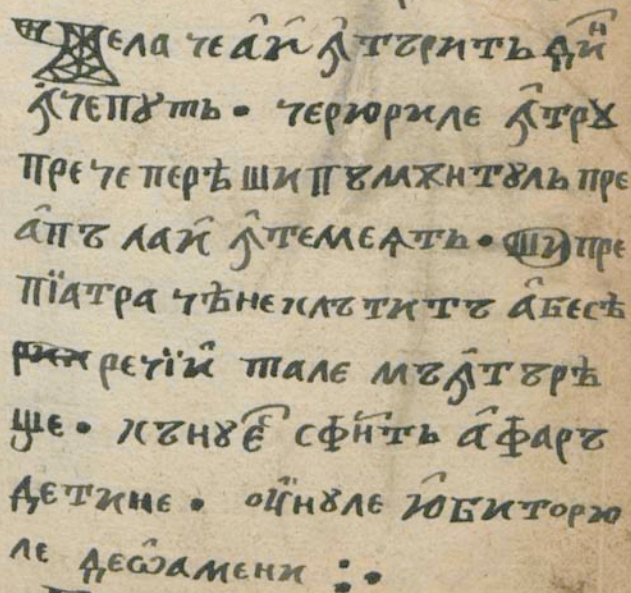 Чела че а̂и ꙟтърить диⷩ
ꙟчепꙋть · черюриле ꙟтрꙋ
пречеперѣ ши пъмѫнтꙋль пре
а̂пъ лаи ꙟтемеѧть · ши пре
піатра чѣ неклътитъ а̂ бесѣ
речїи тале мъ ꙟтърѣ
ще · къ нꙋ е̂ сфить а̂фаръ
де тине · оу̂нꙋле ю̂биторю
ле де ѡ̂амени :·